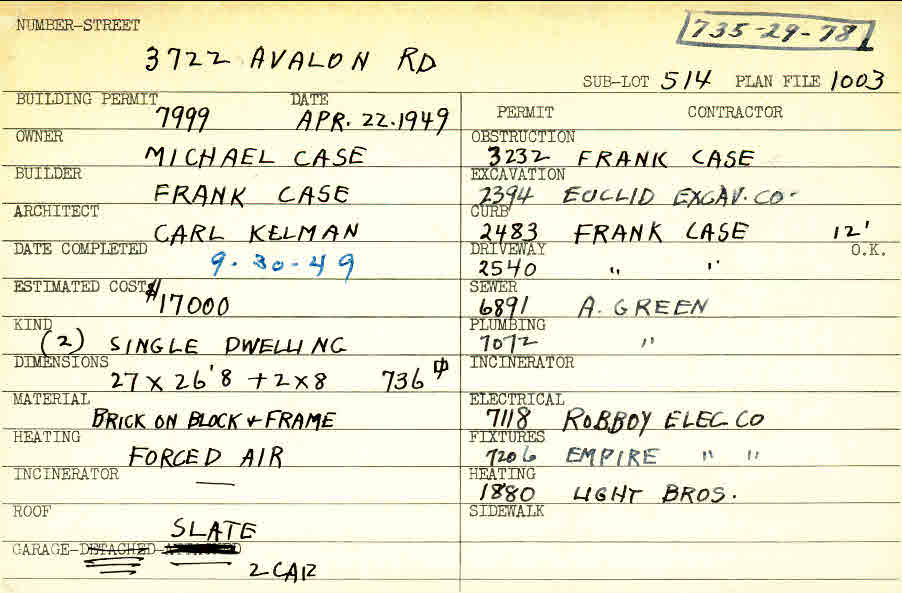 NUMBER-STREET
735-29-78
3722 AVALON RD
SUB-LOT 514 PLAN FILE 1003
BUILDING PERMIT DATE
7999 APR. 22. 1949
OWNER
MICHAEL CASE
BUILDER
FRANK CASE
ARCHITECT
CARL KELMAN
DATE COMPLETED
9-30-49
ESTIMATED COST
$17000
KIND
(2) SINGLE DWELLING
DIMENSIONS
27 X 26'8 + 2 X 8 736
MATERIAL
BRICK ON BLOCK + FRAME
HEATING
FORCED AIR
INCINERATOR
—
ROOF
SLATE
GARAGE-DETACHED
2 CAR
PERMIT CONTRACTOR
OBSTRUCTION
3232 FRANK CASE
EXCAVATION
2394 EUCLID EXCAV. CO.
CURB
2483 FRANK CASE 12'
DRIVEWAY O.K.
2540 " "
SEWER
6891 A. GREEN
PLUMBING
7072 "
INCINERATOR
ELECTRICAL
7118 ROBBOY ELEC CO
FIXTURES
7206 EMPIRE " "
HEATING
1880 LIGHT BROS.
SIDEWALK